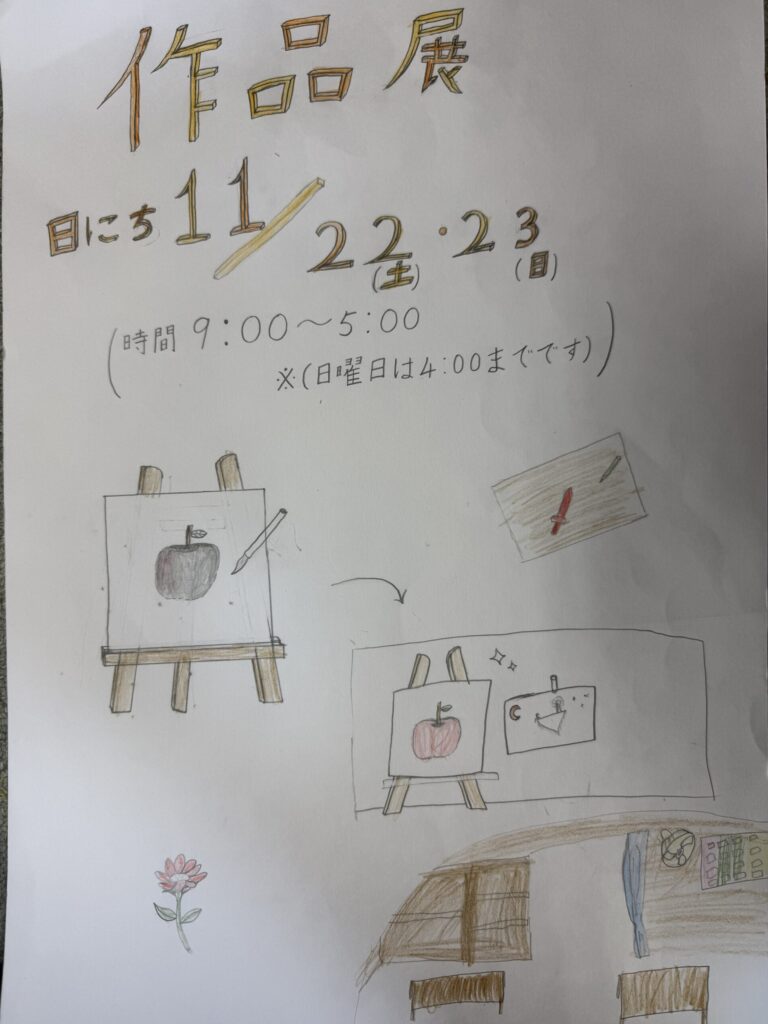 作品展
日にち 11/22(土)・23(日)
(時間 9:00〜5:00
※(日曜日は4:00までです))